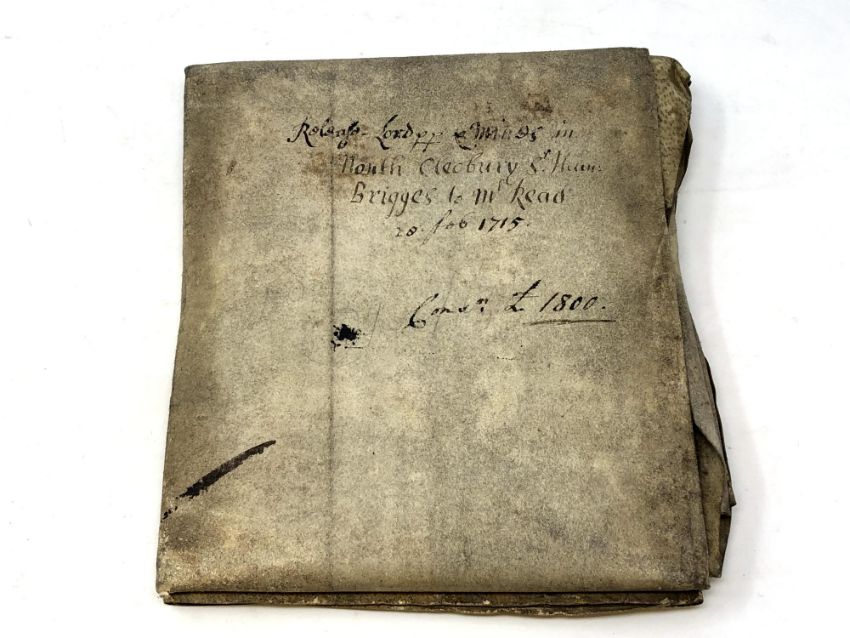 Release Lordpp & Mines in
North Cleobury Sr Hum:
Brigges to Mr Read
28. feb 1715.
Consn. £ 1800.